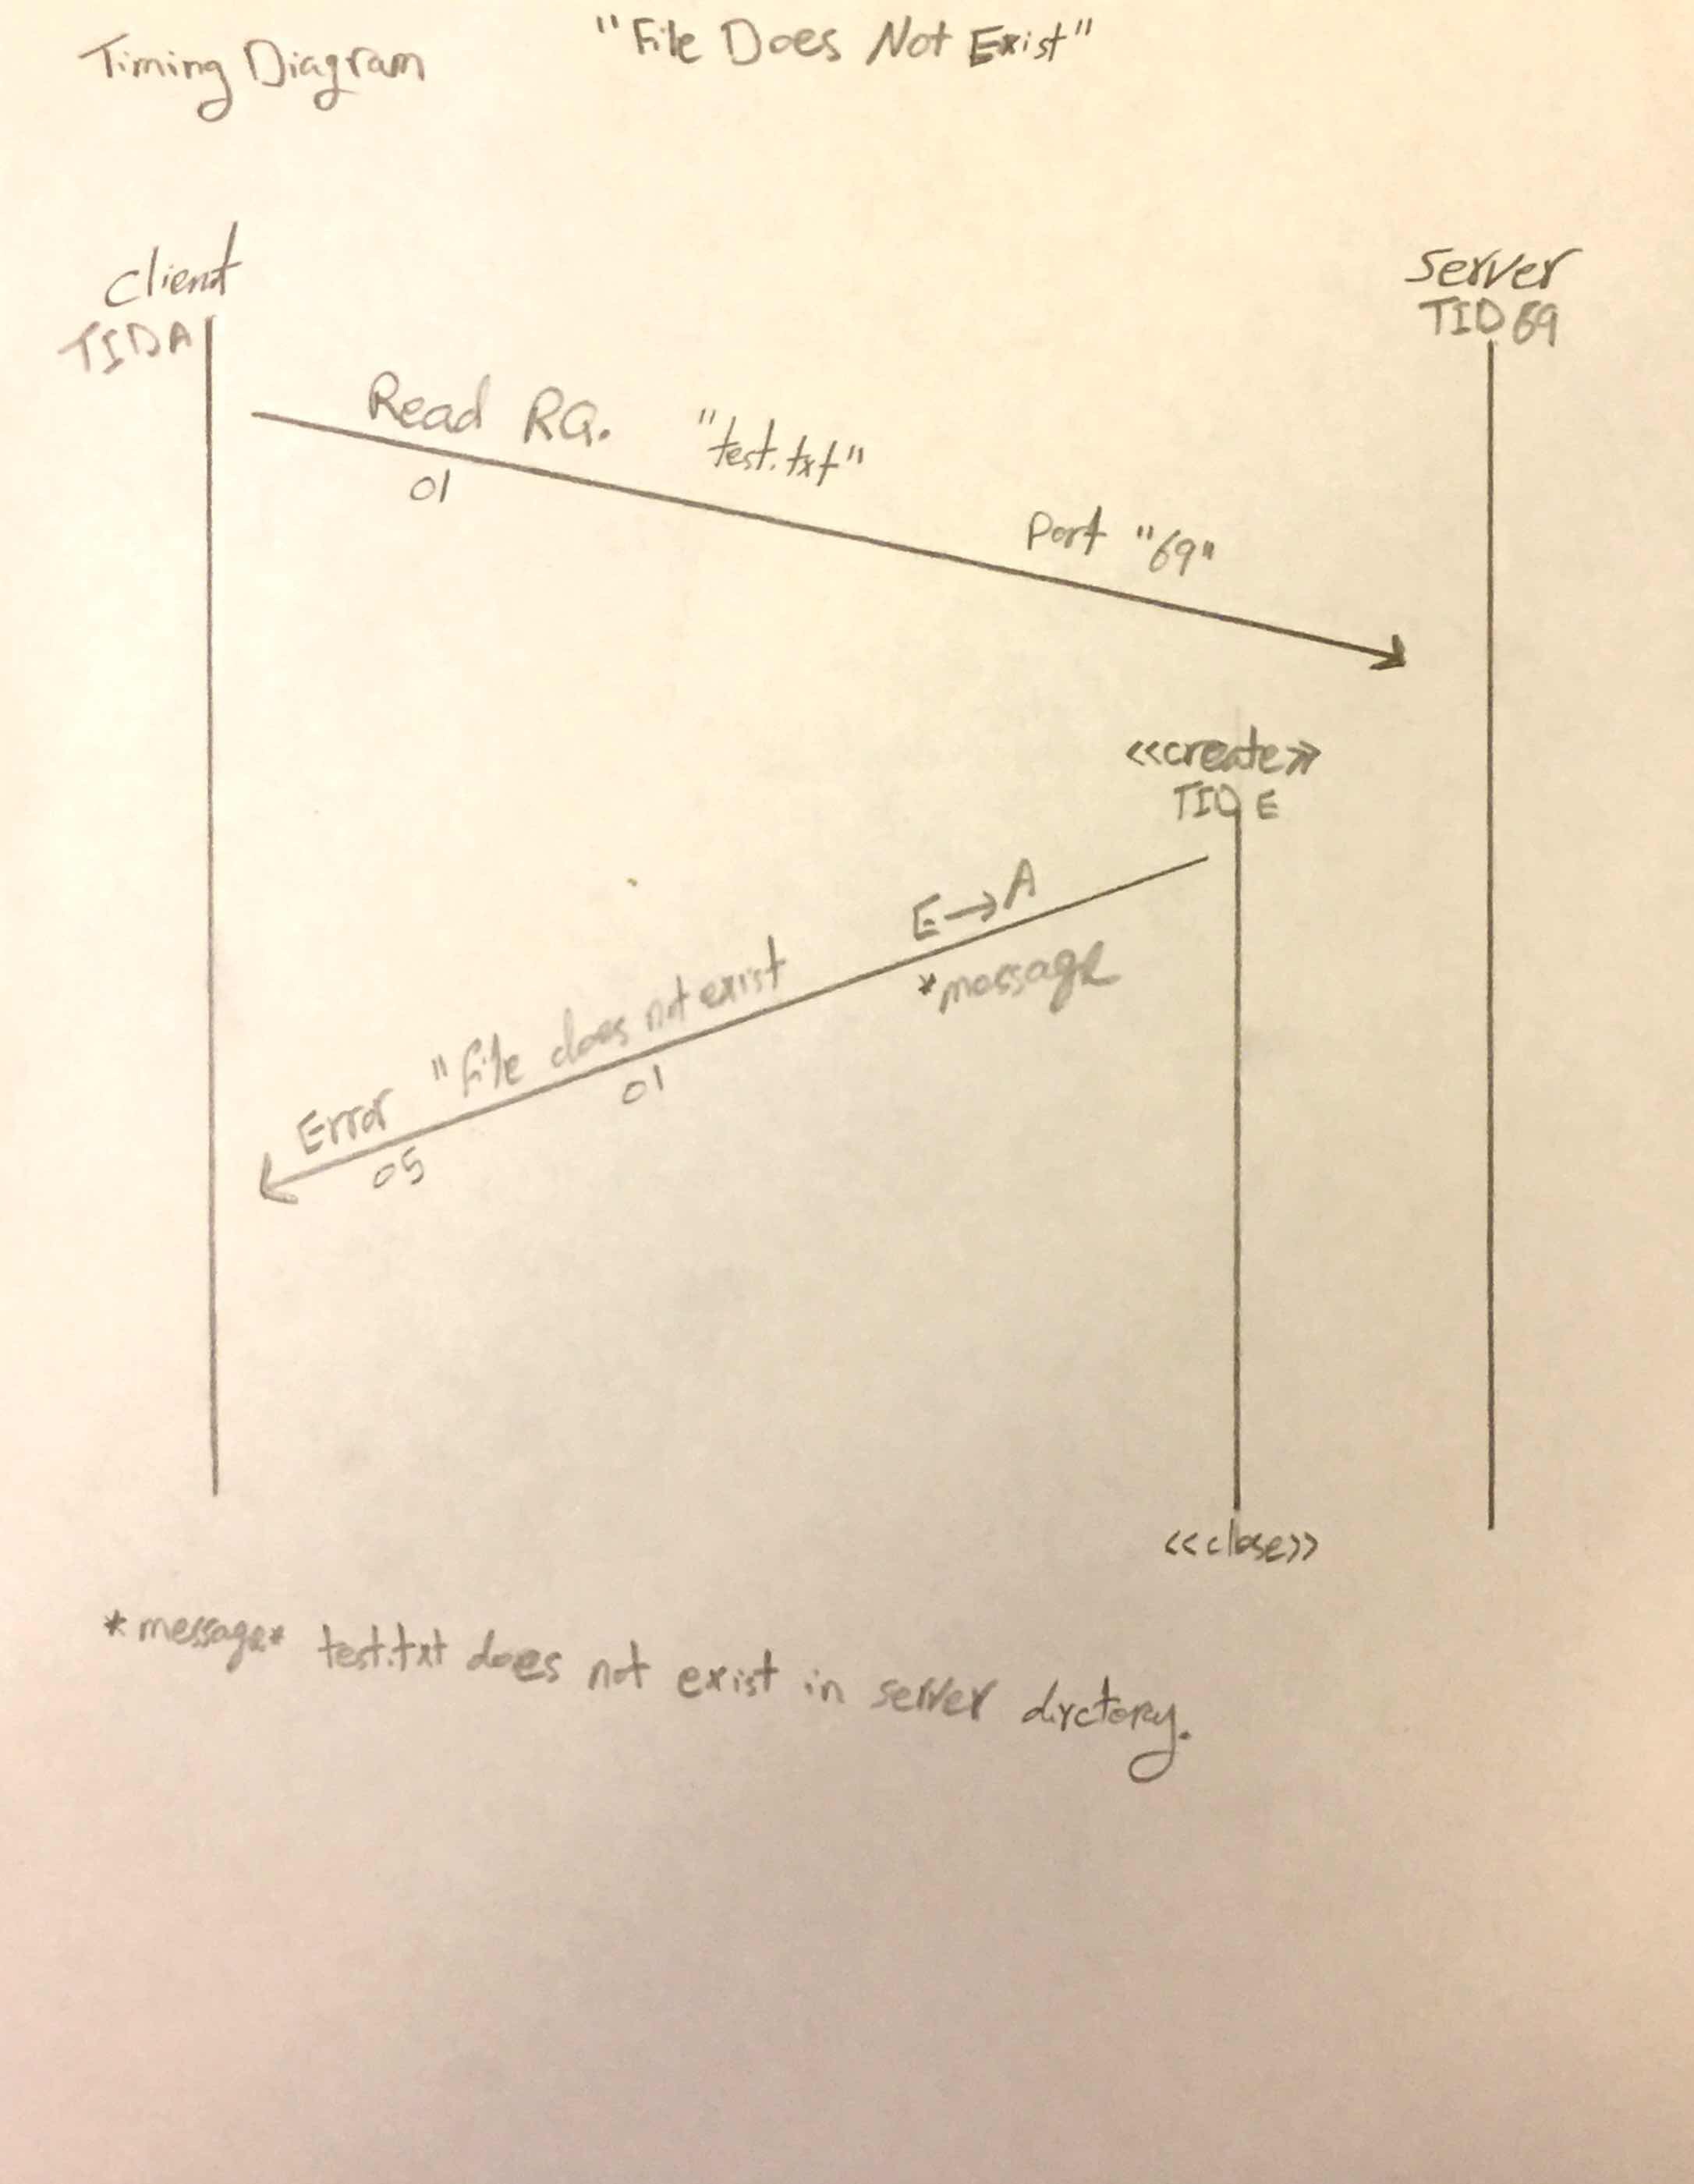 Timing Diagram
"File Does Not Exist"
Client
TID A
Server
TID 69
Read RQ. "test.txt"
01
Port "69"
<<create>>
TID E
E→A
*message
Error "file does not exist
01
05
<<close>>
*message* test.txt does not exist in server dirctory.